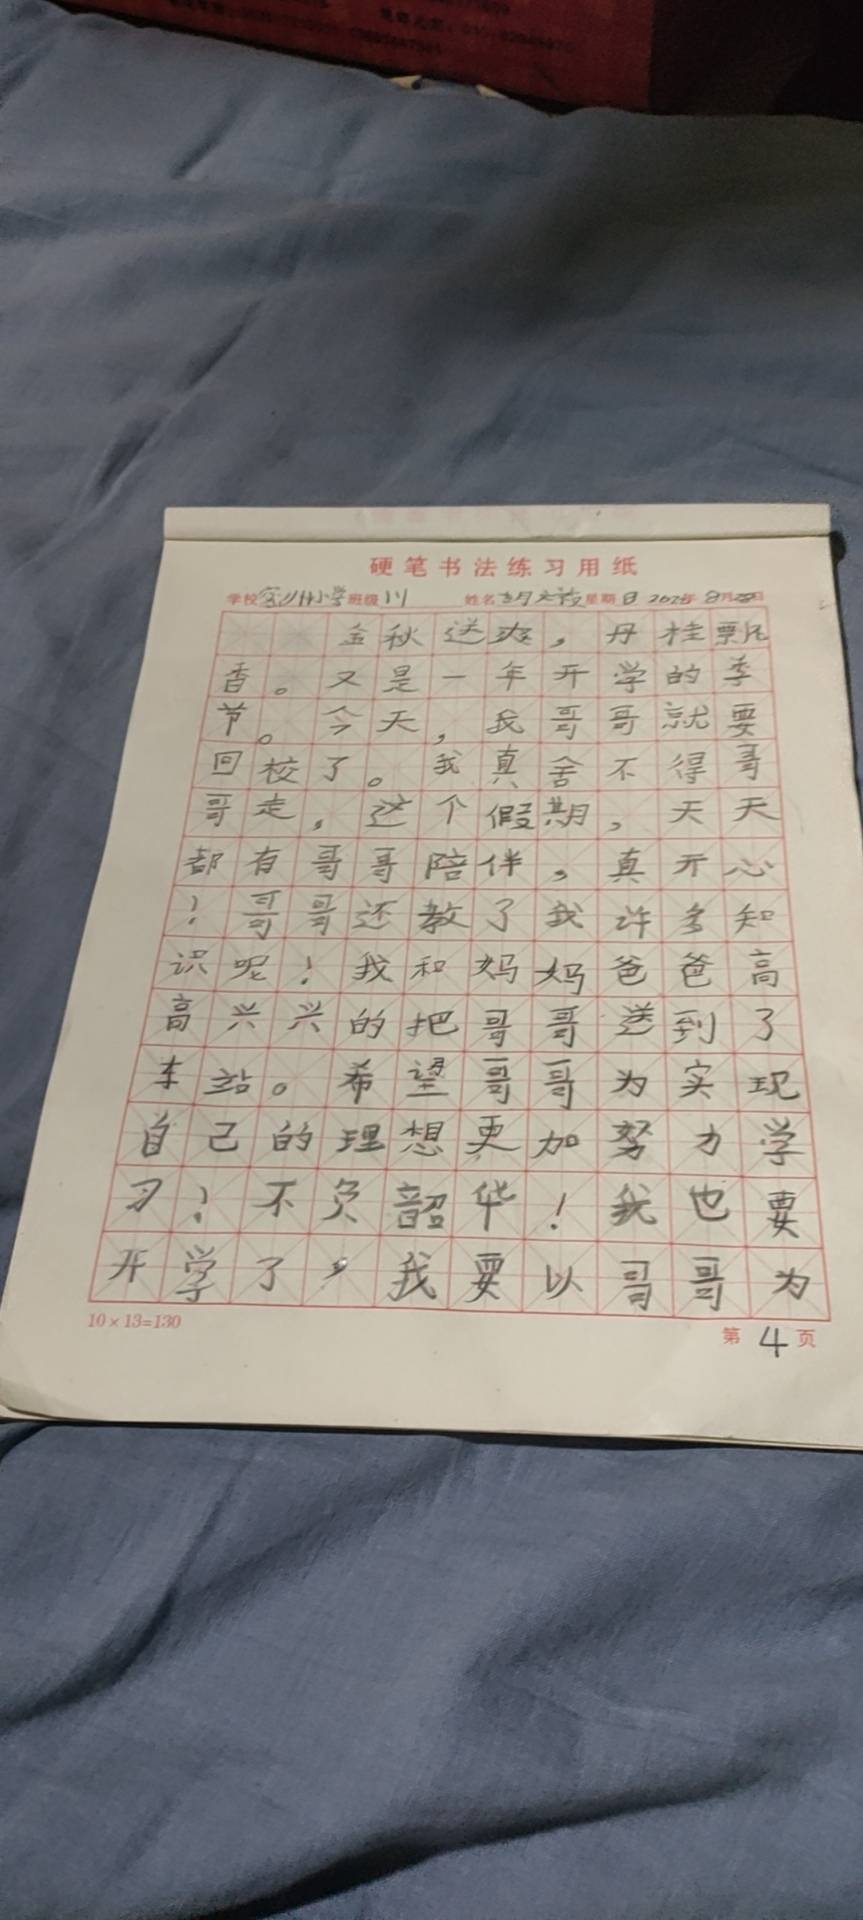 硬笔书法练习用纸
学校 小学 班级 姓名 星期日 年8月 日
金秋送爽，丹桂飘
香。又是一年开学的季
节。今天，我哥哥就要
回校了。我真舍不得哥
哥走，这个假期，天天
都有哥哥陪伴，真开心
！哥哥还教了我许多知
识呢！我和妈妈爸爸高
高兴兴的把哥哥送到了
车站。希望哥哥为实现
自己的理想更加努力学
习！不负韶华！我也要
开学了，我要以哥哥为
10×13=130
第4页